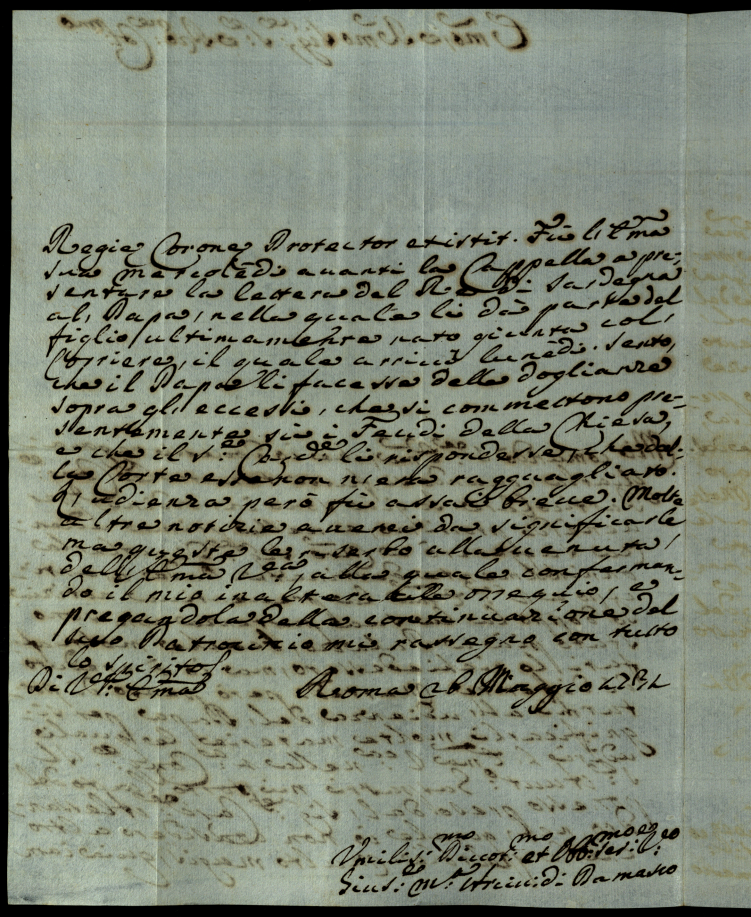 Regie Corone Protector existit. Fù l'Em̃a
sua mercoledì auanti la Cappella a pre-
sentare la lettera del Rè di Sardegna
al Papa, nella quale li dà parte del
figlio ultimamente nato giunta col
Corriere, il quale arriuò lunedì. Sento,
che il Papa li facesse delle doglianze
sopra gli eccessi, che si commettono pre-
sentemente sù i Feudi della Chiesa,
e che il S.r Card.le li rispondesse, che dal-
la Corte esso non n'era ragguagliato.
L'udienza però fù assai breue. Molte
altre notizie auerei da significarle
ma queste le riserbo alla uenuta
dell'Em̃a V.ra, alla quale conferman-
do il mio inalterabile ossequio, e
pregandola della continuazione del
suo Patrocinio mi rassegno con tutto
lo spirito
Di V.ra Em̃a Roma 26 Maggio
Vmilis:mo Diuot:mo et Obb:mo ser:re
Gius: M.a di Damasco